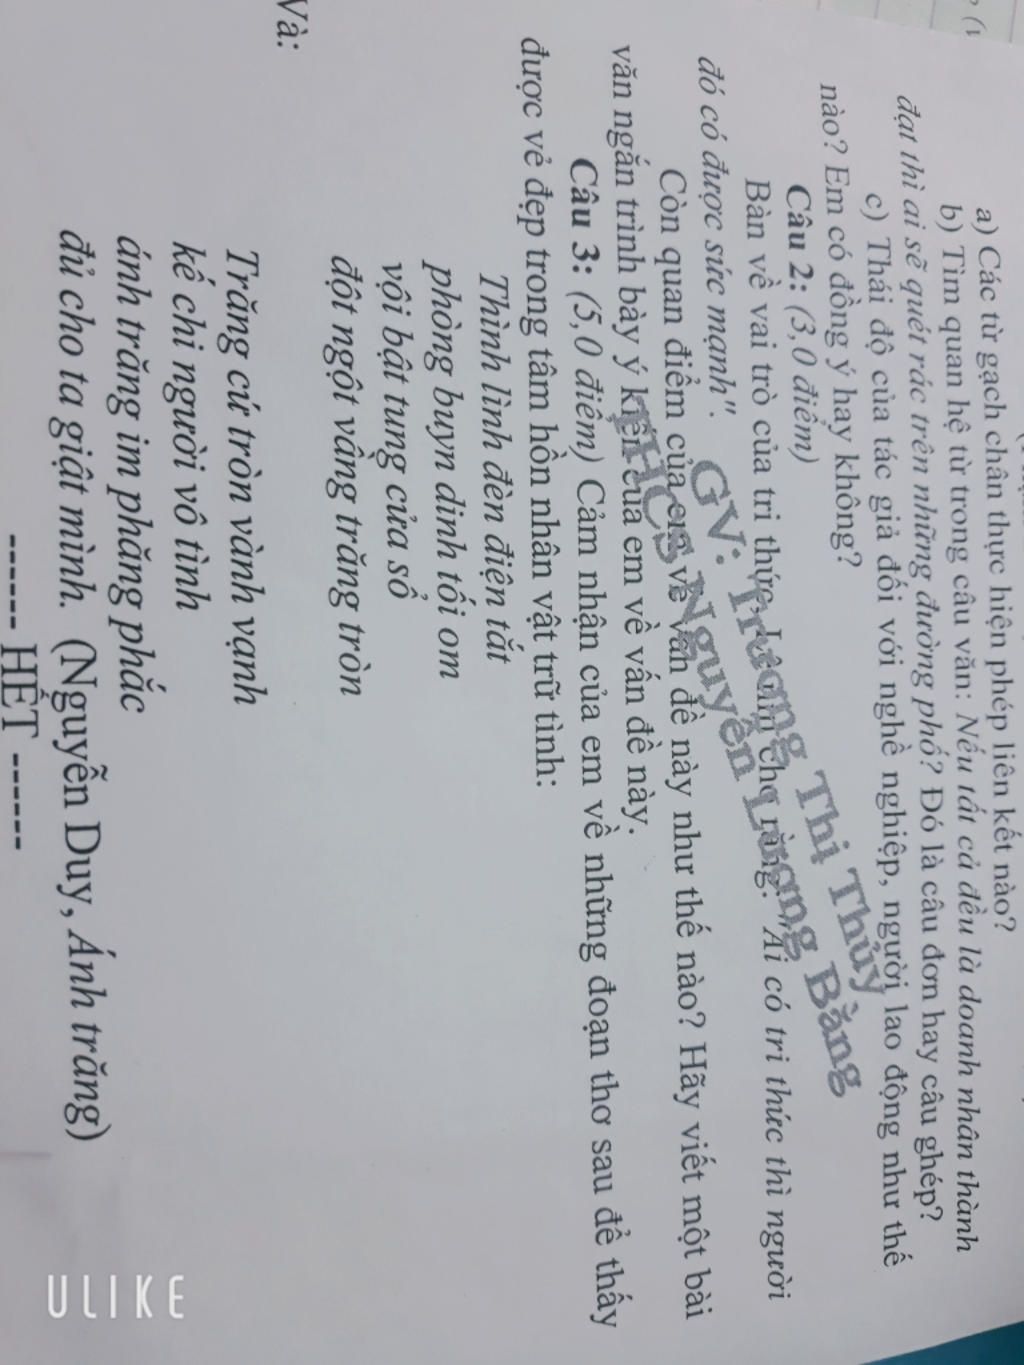 a) Các từ gạch chân thực hiện phép liên kết nào?
b) Tìm quan hệ từ trong câu văn: Nếu tất cả đều là doanh nhân thành
đạt thì ai sẽ quét rác trên những đường phố? Đó là câu đơn hay câu ghép?
c) Thái độ của tác giả đối với nghề nghiệp, người lao động như thế
nào? Em có đồng ý hay không?
Câu 2: (3,0 điểm)
Bàn về vai trò của tri thức, cho rằng: "Ai có tri thức thì người
đó có được sức mạnh".
Còn quan điểm của em về vấn đề này như thế nào? Hãy viết một bài
văn ngắn trình bày ý kiến của em về vấn đề này.
Câu 3: (5,0 điểm) Cảm nhận của em về những đoạn thơ sau để thấy
được vẻ đẹp trong tâm hồn nhân vật trữ tình:
Thình lình đèn điện tắt
phòng buyn dinh tối om
vội bật tung cửa sổ
đột ngột vầng trăng tròn
Và:
Trăng cứ tròn vành vạnh
kể chi người vô tình
ánh trăng im phăng phắc
đủ cho ta giật mình. (Nguyễn Duy, Ánh trăng)
----- HẾT -----
GV: Trương Thị Thủy
THCS Nguyễn Lương Bằng
ULIKE